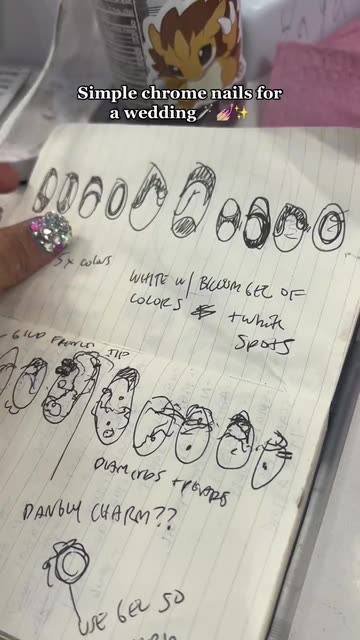 Simple chrome nails for
a wedding🪄💅✨
5x colors
WHITE W/ BLOOM GEL OF
COLORS + white
spots
GOLD FRENCH TIP
DIAMONDS + PEARLS
DANGLY CHARM??
USE GEL SO